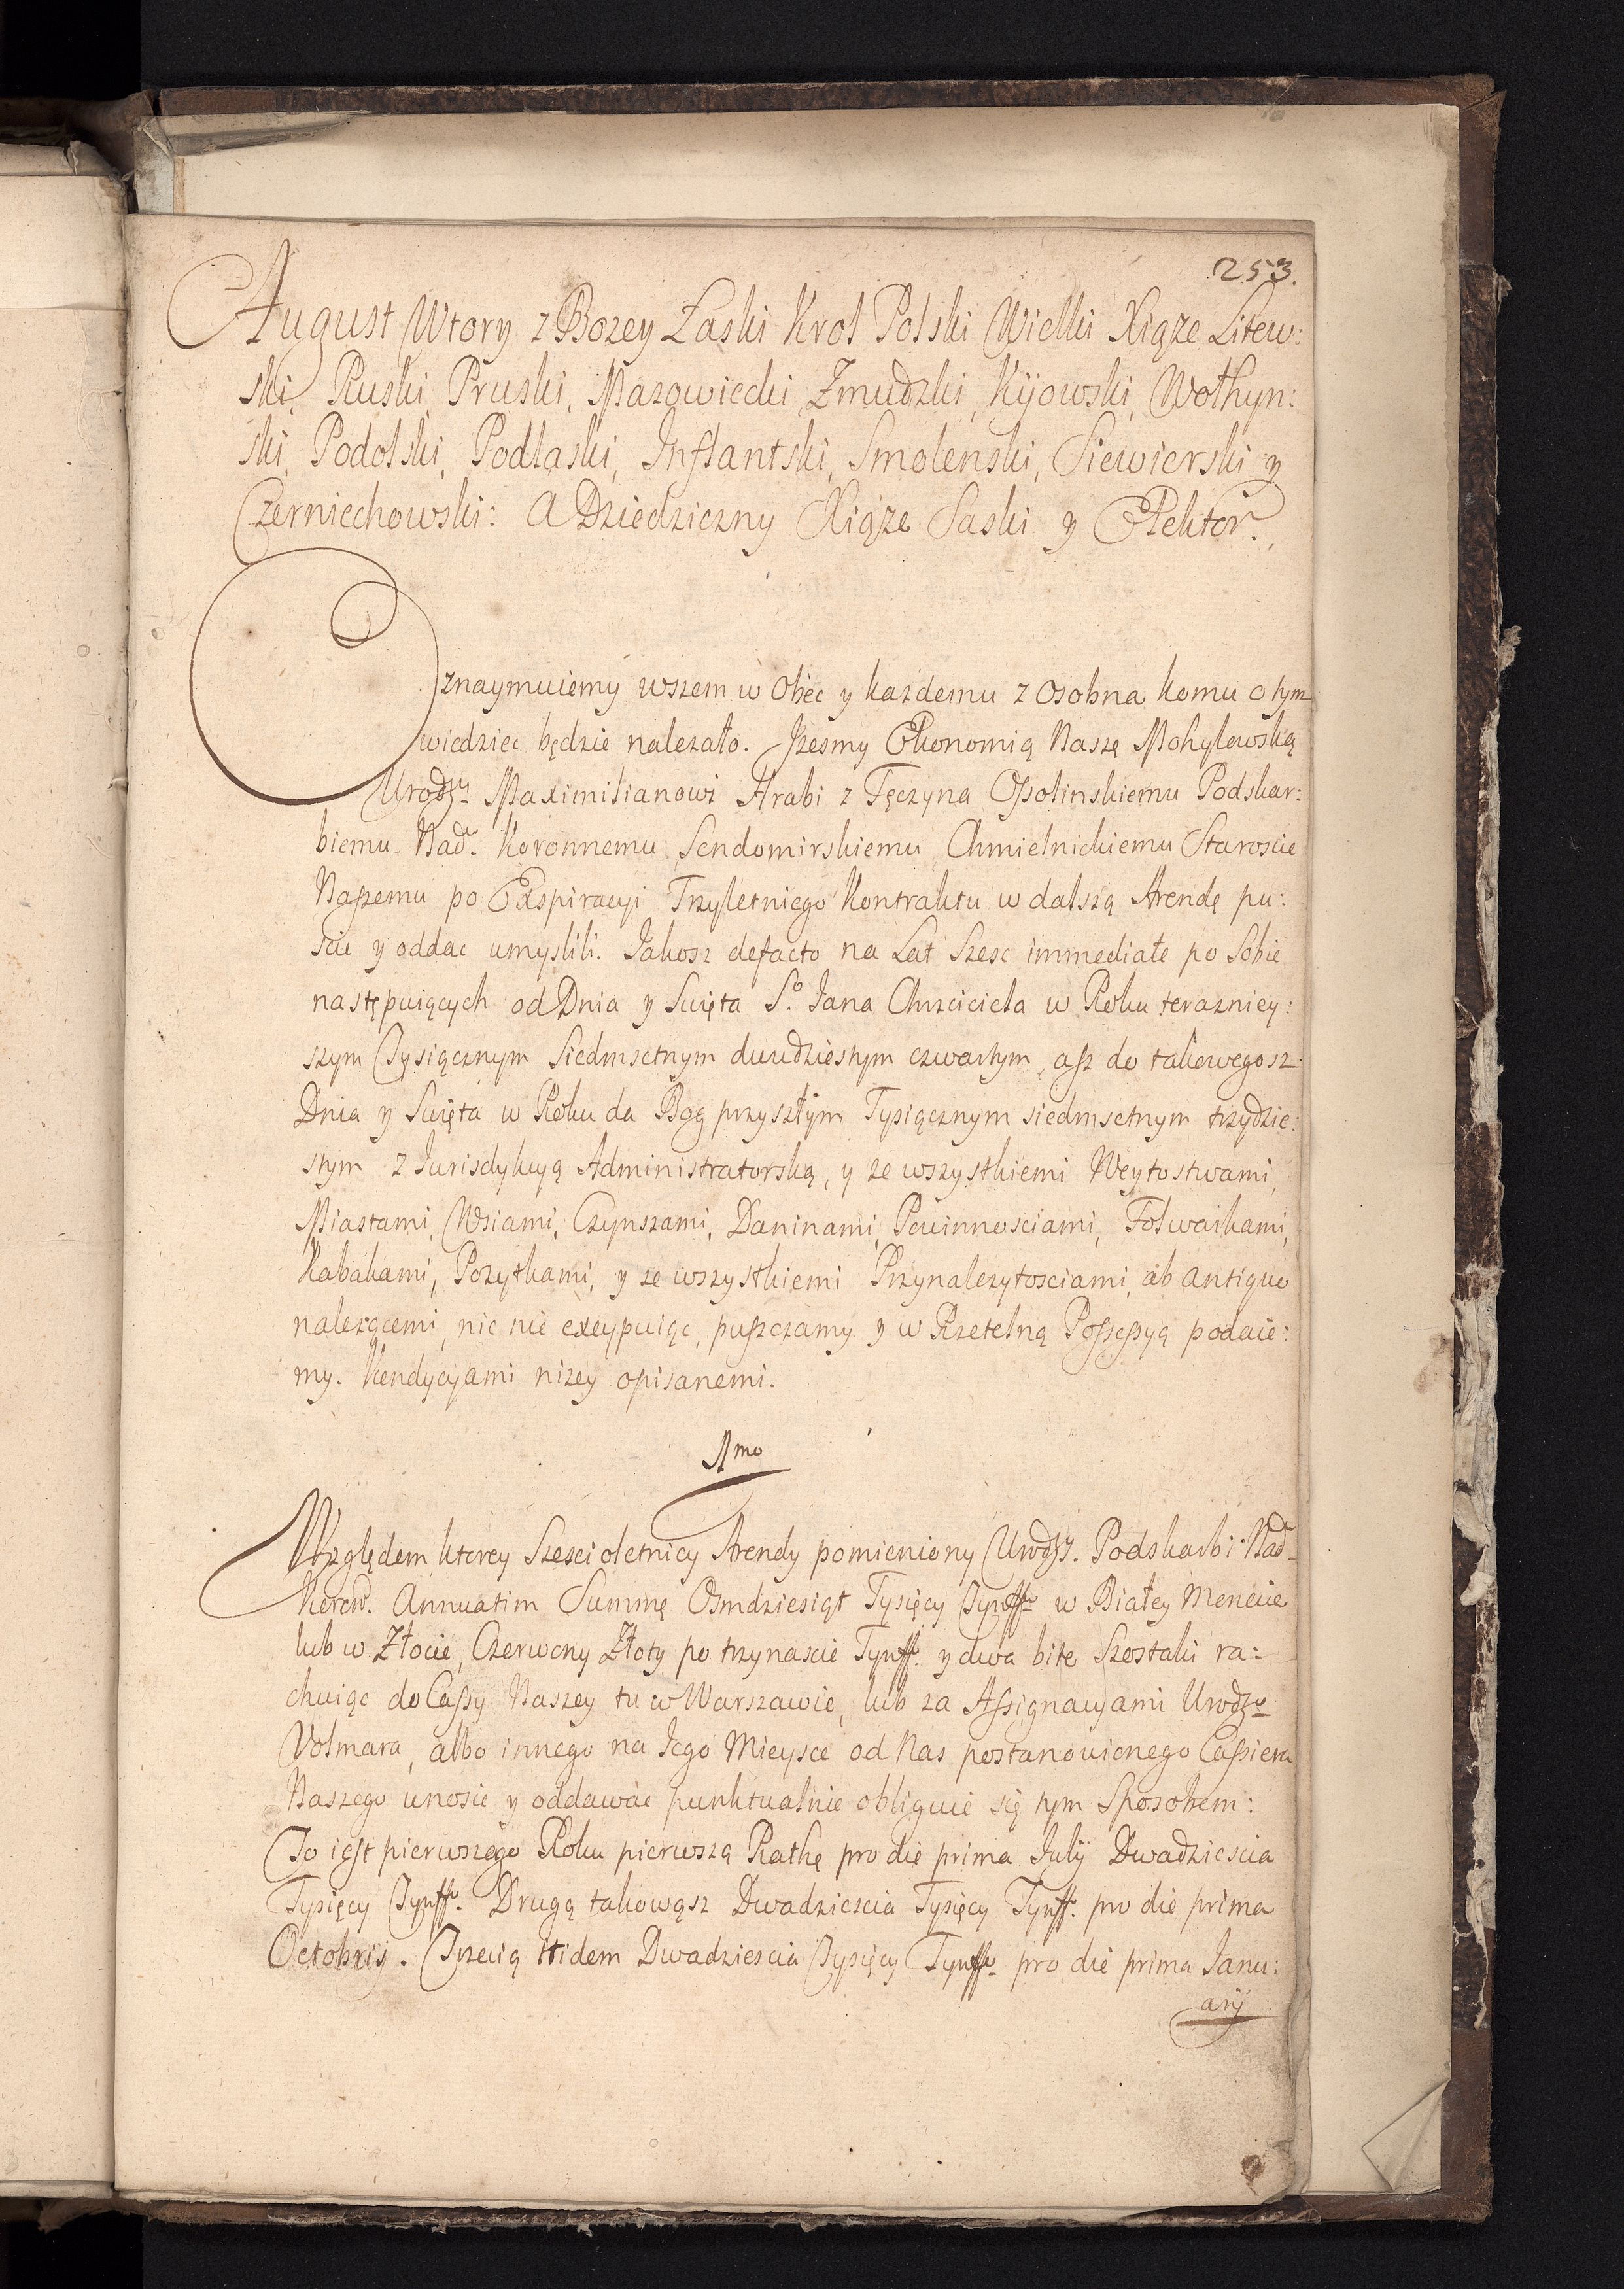 253.
August Wtory z Bozey Łaski Krol Polski Wielki Xiąze Litew:
ski, Ruski, Pruski, Mazowiecki, Zmudzki, Kijowski, Wołhyn:
ski, Podolski, Podlaski, Inflantski, Smolenski, Siewierski y
Czerniechowski: A Dziedziczny Xiąze Saski y Elektor.
Oznaymuiemy wszem w obec y kazdemu z osobna komu o tym
wiedziec będzie nalezało. Izesmy Ekonomią Naszę Mohylowską
Urodz. Maximilianowi Hrabi z Tęczyna Ossolinskiemu Podskar:
biemu Nad. Koronnemu Sendomirskiemu, Chmielnickiemu Staroscie
Naszemu po Exspiracyi Trzyletniego Kontraktu w dalszą Arendę pu:
scic y oddac umyslili. Jakosz defacto na Lat Szesc immediate po Sobie
następuiących od Dnia y Swięta S.º Jana Chrzciciela w Roku teraznicy:
szym Tysiącznym Siedmsetnym dwudziestym czwartym, asz do takowegosz
Dnia y Swięta w Roku da Bog przyszłym Tysiącznym siedmsetnym trzydzie:
stym z Jurisdykcyą Administratorską, y ze wszystkiemi Weytostwami,
Miastami, Wsiami, Czynszami, Daninami, Powinnosciami, Folwarkami,
Kabakami, Pozytkami, y ze wszystkiemi Przynalezytosciami, ab antiquo
nalezącemi, nic nie excypuiąc, puszczamy y w Rzetelną Possessyą podaie:
my. Kondycyami nizey opisanemi.
1mo
Względem ktorey Szescioletnicy Arendy pomieniony Urodz. Podskarbi Nad.
Koron. Annuatim Summę Osmdziesiąt Tysięcy Tynff. w Białey Monecie
lub w Złocie, Czerwony Złoty po trzynascie Tynff. y dwa bite Szostaki ra=
chuiąc do Cassy Naszey tu w Warszawie, lub za Assignacyami Urodz.
Volmara, albo innego na Jego Mieysce od Nas postanowionego Cassiera
Naszego unosic y oddawac punktualnie obliguie się tym Sposobem:
To iest pierwszego Roku pierwszą Rathę pro die prima Julij Dwadziescia
Tysięcy Tynff. Drugą takowąsz Dwadziescia Tysięcy Tynff. pro die prima
Octobrij. Trzecią itidem Dwadziescia Tysięcy Tynff. pro die prima Janu:
arij